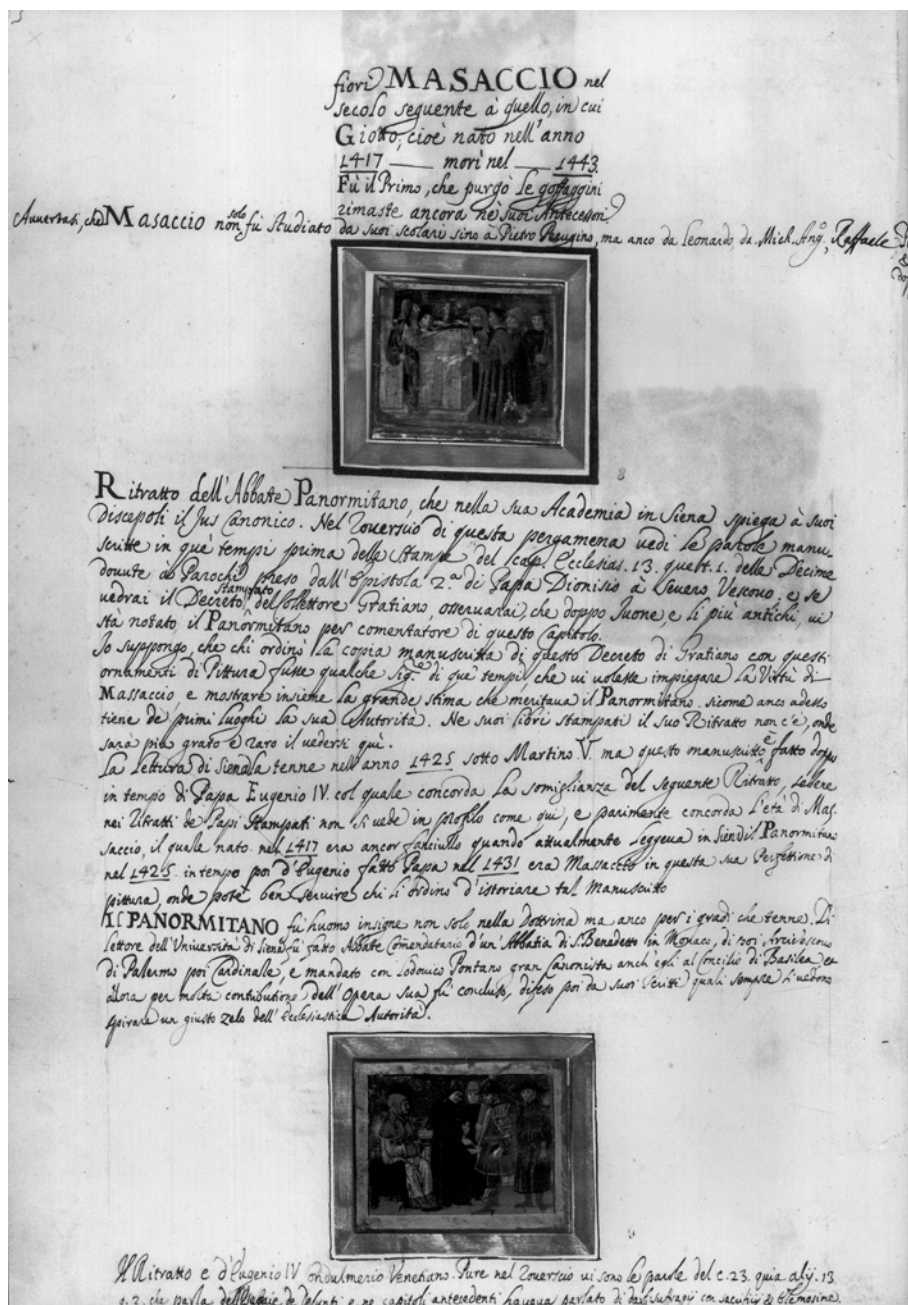 fiorì MASACCIO nel
secolo seguente à quello, in cui
Giotto, cioè nato nell'anno
1417 —— morì nel —— 1443.
Fù il Primo, che purgò le goffaggini
rimaste ancora nè suoi Antecessori
Avvertasi, che Masaccio non solo fù studiato da suoi scolari sino à Pietro Perugino, ma anco da Leonardo, da Mich. Angº, Raffaele
8
Ritratto dell'Abbate Panormitano, che nella sua Academia in Siena spiega à suoi
Discepoli il Jus Canonico. Nel Roverscio di questa pergamena vedi le parole manu-
scritte in què tempi prima delle Stampe del cap. Ecclesias. 13. quest. 1. delle Decime
dovute à Parochi preso dall'Epistola 2.ª di Papa Dionisio à Severo Vescovo, e se
vedrai il Decreto stampato del Collettore Gratiano, osservarai, che doppo Ivone, e li più antichi, vi
stà notato il Panormitano per comentatore di questo Capitolo.
Io suppongo, che chi ordinò la copia manuscritta di questo Decreto di Gratiano con questi
ornamenti di Pittura fusse qualche Sig.re di què tempi, che vi volesse impiegare la Virtù di
Massaccio, e mostrare insieme la grande stima che meritava il Panormitano, sicome anco adesso
tiene de primi luoghi la sua Autorità. Ne suoi libri stampati il suo Ritratto non c'è, onde
sarà più grato e raro il vedersi quì.
La lettura di Siena la tenne nell'anno 1425 sotto Martino V. ma questo manuscritto è fatto doppo
in tempo di Papa Eugenio IV. col quale concorda la somiglianza del seguente Ritratto, sebene
nei Ritratti de Papi Stampati non si vede in profilo come qui, e parimente concorda l'età di Mas-
saccio, il quale nato nel 1417 era ancor fanciullo quando attualmente leggeva in Siena il Panormitano
nel 1425. in tempo poi d'Eugenio fatto Papa nel 1431 era Massaccio in questa sua Perfettione di
pittura, onde potè ben servire chi li ordinò d'istoriare tal Manuscritto
Il PANORMITANO fù huomo insigne non solo nella Dottrina ma anco per i gradi che tenne. Di
lettore dell'Università di Siena fù fatto Abbate Comendatario d'un'Abbatia di S. Benedetto in Monaco, di poi Arcivescovo
di Palermo poi Cardinale, e mandato con Lodovico Pontano gran Canonista anch'egli al Concilio di Basilea
allora per molta contributione dell'Opera sua fù concluso, difeso poi da suoi Scritti quali sempre si vedono
spirare un giusto zelo dell'Ecclesiastica Autorità.
Il Ritratto e d'Eugenio IV Condulmerio Venetiano. Pure nel Roverscio vi sono le parole del c. 23. quia alij. 13
q. 2. che parla dell' de Defunti e ne capitoli antecedenti haveva parlato di con sacrificij & Elemosine